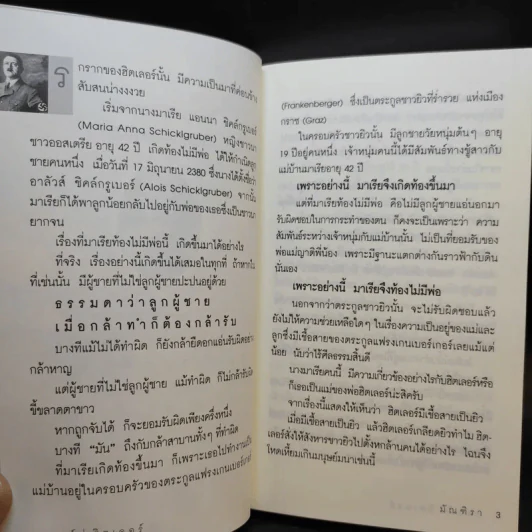 รากรากของฮิตเลอร์นั้น มีความเป็นมาที่ค่อนข้าง
สับสนน่างงงวย
เริ่มจากนางมาเรีย แอนนา ชิคล์กรูเบอร์
(Maria Anna Schicklgruber) หญิงชาวนา
ชาวออสเตรีย อายุ 42 ปี เกิดท้องไม่มีพ่อ ได้ให้กำเนิดลูก
ชายคนหนึ่ง เมื่อวันที่ 17 มิถุนายน 2380 ซึ่งนางได้ตั้งชื่อว่า
อาลัวส์ ชิคล์กรูเบอร์ (Alois Schicklgruber) จากนั้น
มาเรียก็ได้พาลูกน้อยกลับไปอยู่กับพ่อของเธอซึ่งเป็นชาวนา
ยากจน
เรื่องที่มาเรียท้องไม่มีพ่อนี้ เกิดขึ้นมาได้อย่างไร
ที่จริง เรื่องอย่างนี้เกิดขึ้นได้เสมอในทุกที่ ถ้าหากใน
ที่เช่นนั้น มีผู้ชายที่ไม่ใช่ลูกผู้ชายปะปนอยู่ด้วย
ธรรมดาว่าลูกผู้ชาย
เมื่อกล้าทำก็ต้องกล้ารับ
บางทีแม้ไม่ได้ทำผิด ก็ยังกล้ายืดอกแอ่นรับผิดอย่าง
กล้าหาญ
แต่ผู้ชายที่ไม่ใช่ลูกผู้ชาย แม้ทำผิด ก็ไม่กล้ารับผิด
ขี้ขลาดตาขาว
หากถูกจับได้ ก็จะยอมรับผิดเพียงครึ่งหนึ่ง
บางที “มัน” ถึงกับกล้าสาบานทั้งๆ ที่ทำผิด
ที่มาเรียเกิดท้องขึ้นมา ก็เพราะเธอไปทำงานเป็น
แม่บ้านอยู่ในครอบครัวของตระกูลแฟรงเกนเบอร์เกอร์
(Frankenberger) ซึ่งเป็นตระกูลชาวยิวที่ร่ำรวย แห่งเมือง
กราซ (Graz)
ในครอบครัวชาวยิวนั้น มีลูกชายวัยหนุ่มต้นๆ อายุ
19 ปีอยู่คนหนึ่ง เจ้าหนุ่มคนนี้ได้มีสัมพันธ์ทางชู้สาวกับ
แม่บ้านมาเรียอายุ 42 ปี
เพราะอย่างนี้ มาเรียจึงเกิดท้องขึ้นมา
แต่ที่มาเรียท้องไม่มีพ่อ คือไม่มีลูกผู้ชายแอ่นอกมา
รับผิดชอบในการกระทำของตน ก็คงจะเป็นเพราะว่า ความ
สัมพันธ์ระหว่างเจ้าหนุ่มกับแม่บ้านนั้น ไม่เป็นที่ยอมรับของ
พ่อแม่ญาติพี่น้อง เพราะมีฐานะแตกต่างกันราวฟ้ากับดิน
นั่นเอง
เพราะอย่างนี้ มาเรียจึงท้องไม่มีพ่อ
นอกจากว่าตระกูลชาวยิวนั้น จะไม่รับผิดชอบแล้ว
ยังไม่ให้ความช่วยเหลือใดๆ ในเรื่องความเป็นอยู่ของแม่และ
ลูกซึ่งมีเชื้อสายของตระกูลแฟรงเกนเบอร์เกอร์เลยแม้แต่
น้อย นับว่าไร้ศีลธรรมสิ้นดี
นางมาเรียคนนี้ มีความเกี่ยวข้องอย่างไรกับฮิตเลอร์หรือ
ก็เธอเป็นแม่ของพ่อฮิตเลอร์น่ะสิครับ
จากเรื่องนี้แสดงให้เห็นว่า ฮิตเลอร์มีเชื้อสายเป็นยิว
เมื่อมีเชื้อสายเป็นยิว แล้วฮิตเลอร์เกลียดยิวทำไม ฮิต-
เลอร์สั่งให้สังหารชาวยิวไปตั้งหกล้านคนได้อย่างไร ไฉนจึง
โหดเหี้ยมเกินมนุษย์มนาเช่นนี้
มัณฑิรา 3